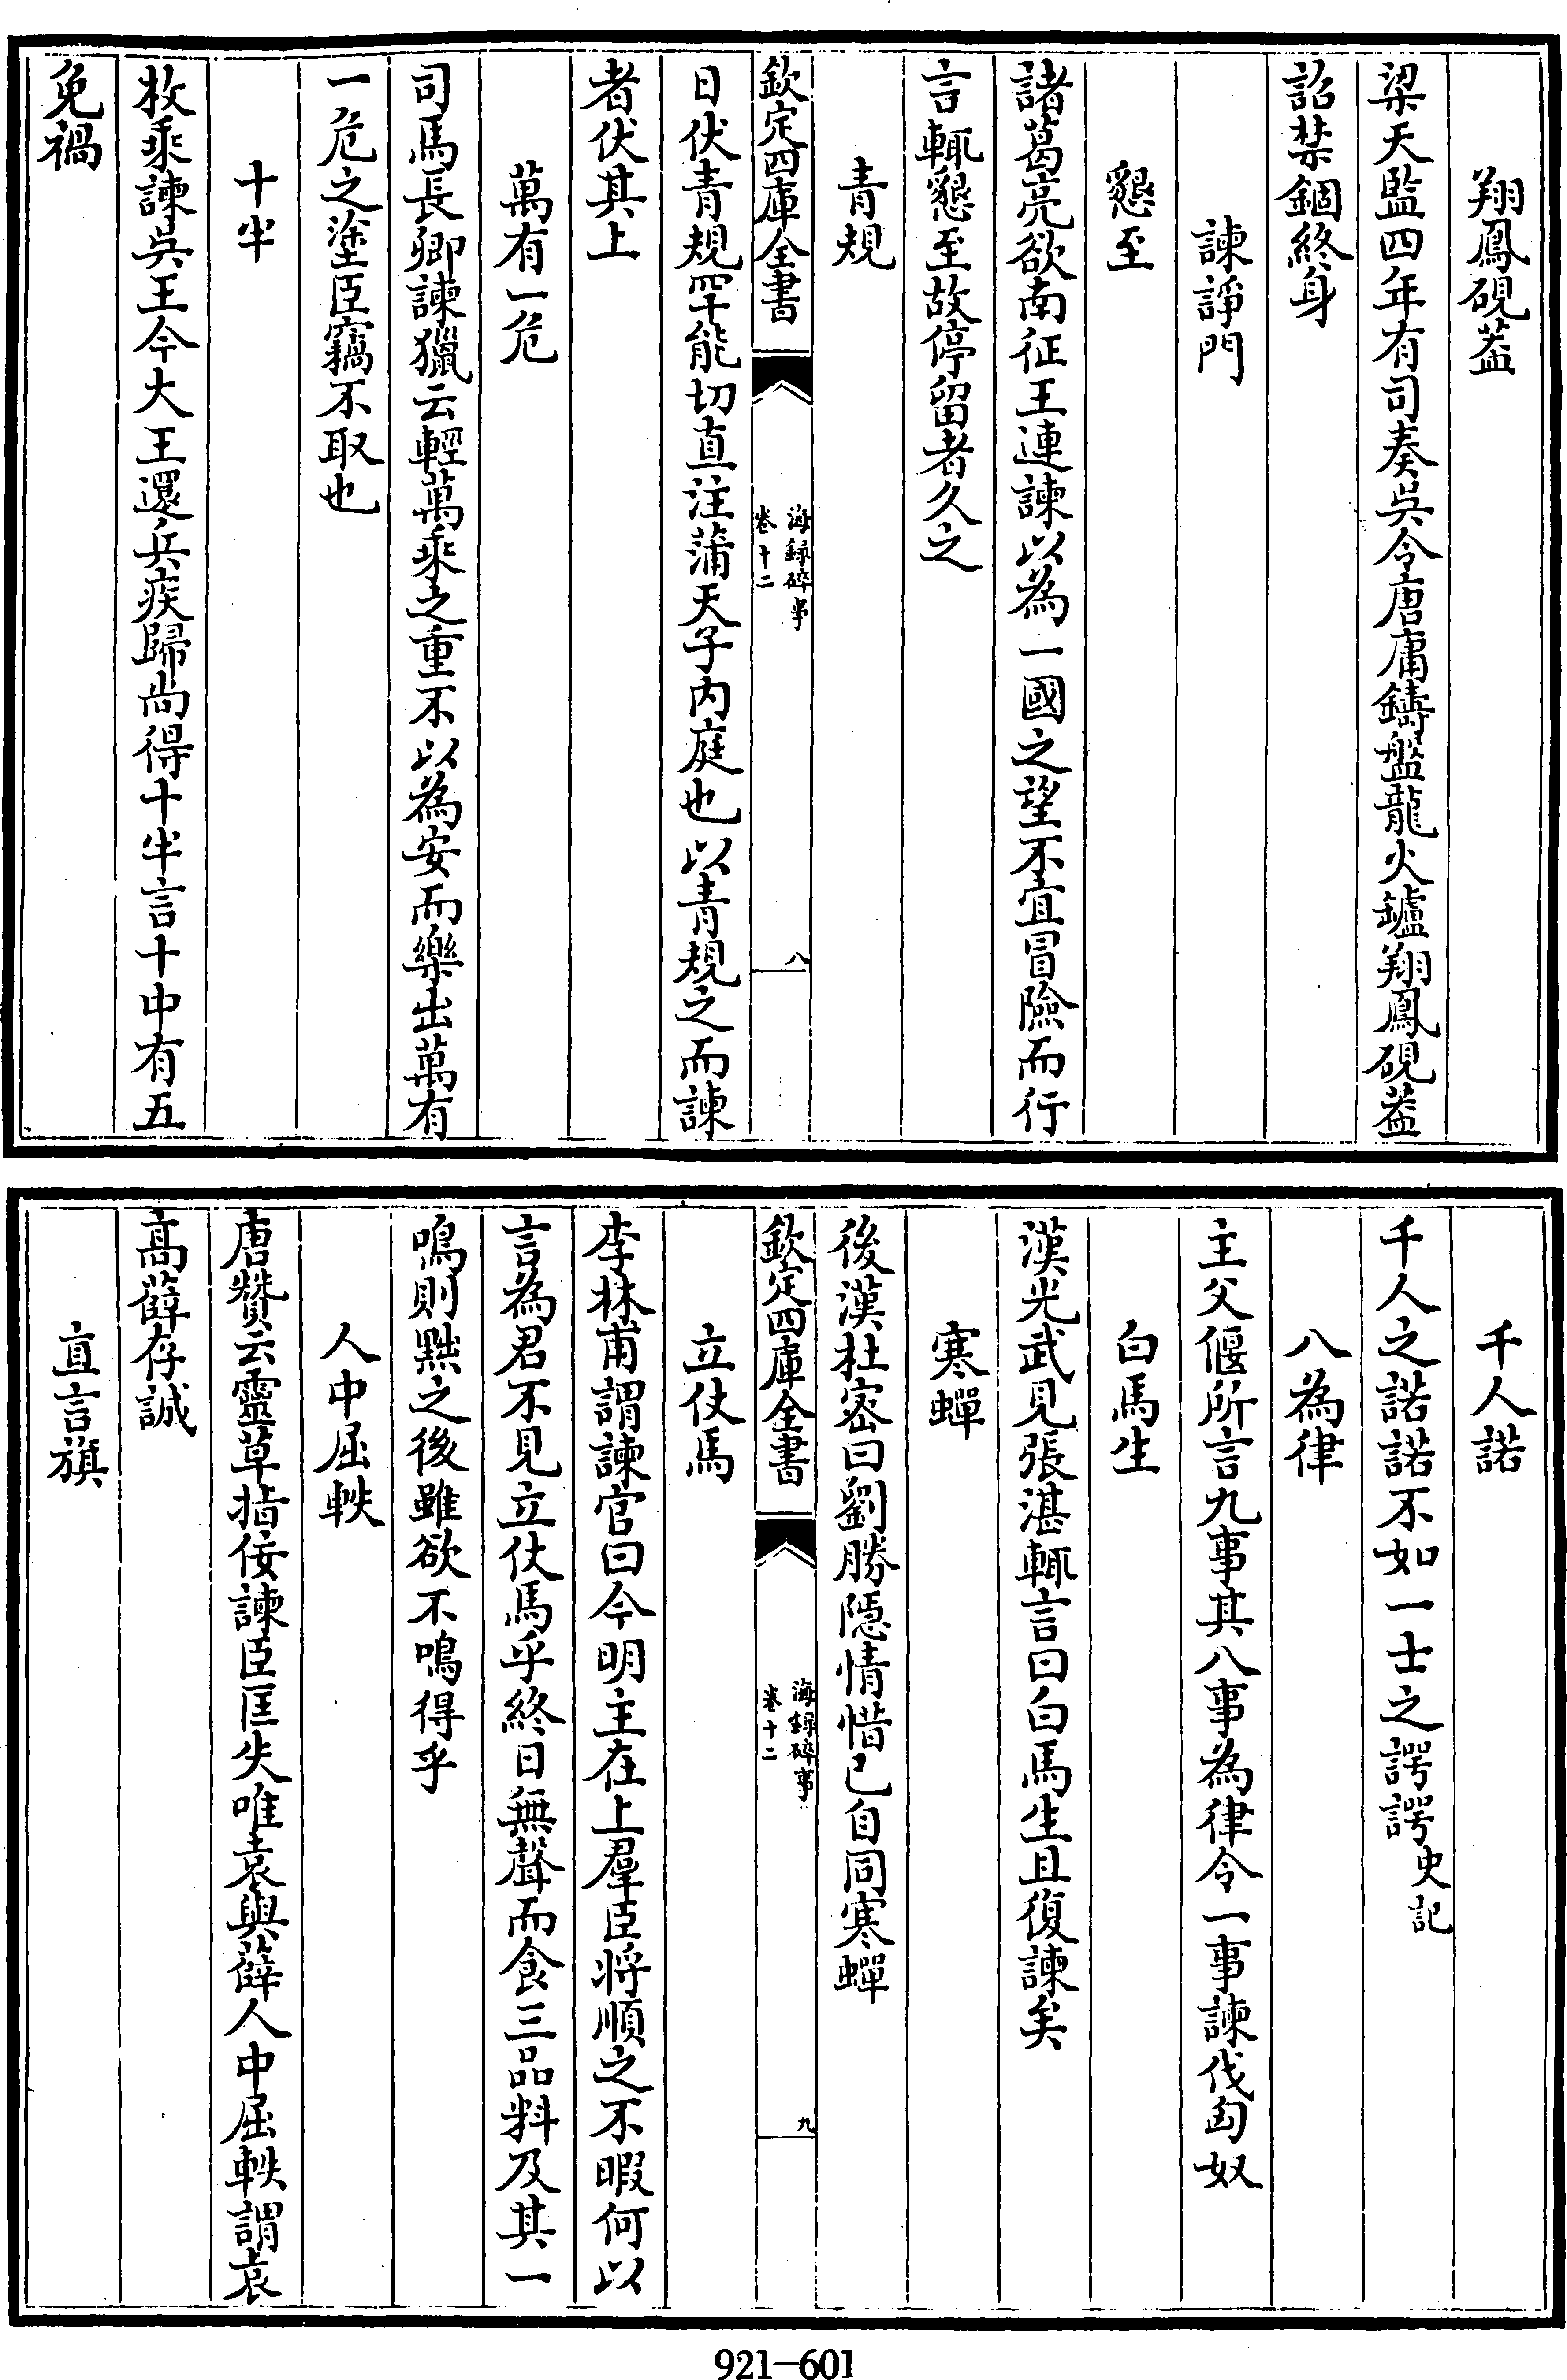 翔鳳硯葢
梁天監四年有司奏吳令唐庸鑄盤龍火鑪翔鳳硯葢
詔禁錮終身
諫諍門
懇至
諸葛亮欲南征王連諫以為一國之望不宜冒險而行
言輒懇至故停留者久之
青規
欽定四庫全書
海録碎事
卷十二
八
日伏青規罕能切直注蒲天子内庭也以青規之而諫
者伏其上
萬有一危
司馬長卿諫獵云輕萬乘之重不以為安而樂出萬有
一危之塗臣竊不取也
十半
枚乘諫吳王今大王還兵疾歸尚得十半言十中有五
免禍
千人諾
千人之諾諾不如一士之諤諤史記
八為律
主父偃所言九事其八事為律令一事諫伐匈奴
白馬生
漢光武見張湛輒言曰白馬生且復諫矣
寒蟬
後漢杜密曰劉勝隱情惜已自同寒蟬
欽定四庫全書
海録碎事
卷十二
九
立仗馬
李林甫謂諫官曰今明主在上羣臣將順之不暇何以
言為君不見立仗馬乎終日無聲而食三品料及其一
鳴則黜之後雖欲不鳴得乎
人中屈軼
唐贊云靈草指佞諫臣匡失唯袁與薛人中屈軼謂袁
高薛存誠
直言旗
921—601